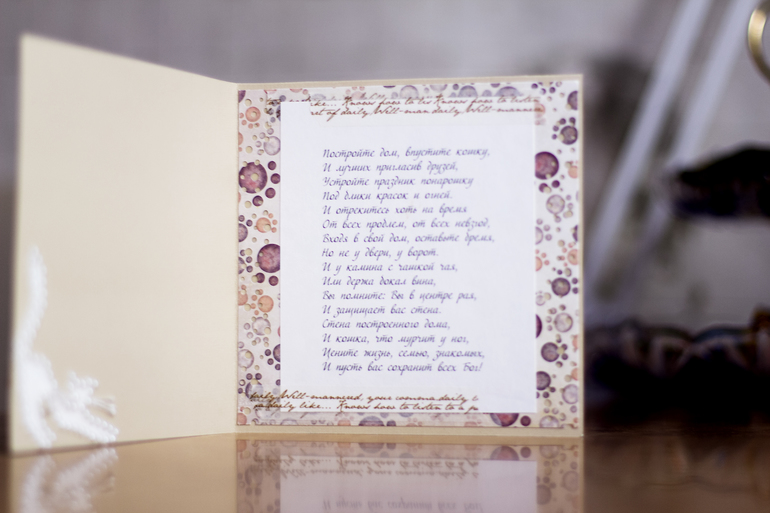 like... Knows how to lis Knows how to listen
ret of daily Well-man daily Well-manner
Постройте дом, впустите кошку,
И лучших пригласив друзей,
Устройте праздник понарошку
Под блики красок и огней.
И отрекитесь хоть на время
От всех проблем, от всех невзгод,
Входя в свой дом, оставьте бремя,
Но не у двери, у ворот.
И у камина с чашкой чая,
Или держа бокал вина,
Вы помните: Вы в центре рая,
И защищает вас стена.
Стена построенного дома,
И кошка, что мурчит у ног,
Цените жизнь, семью, знакомых,
И пусть вас сохранит всех Бог!
Well-mannered, your comma daily
like... Knows how to listen to a